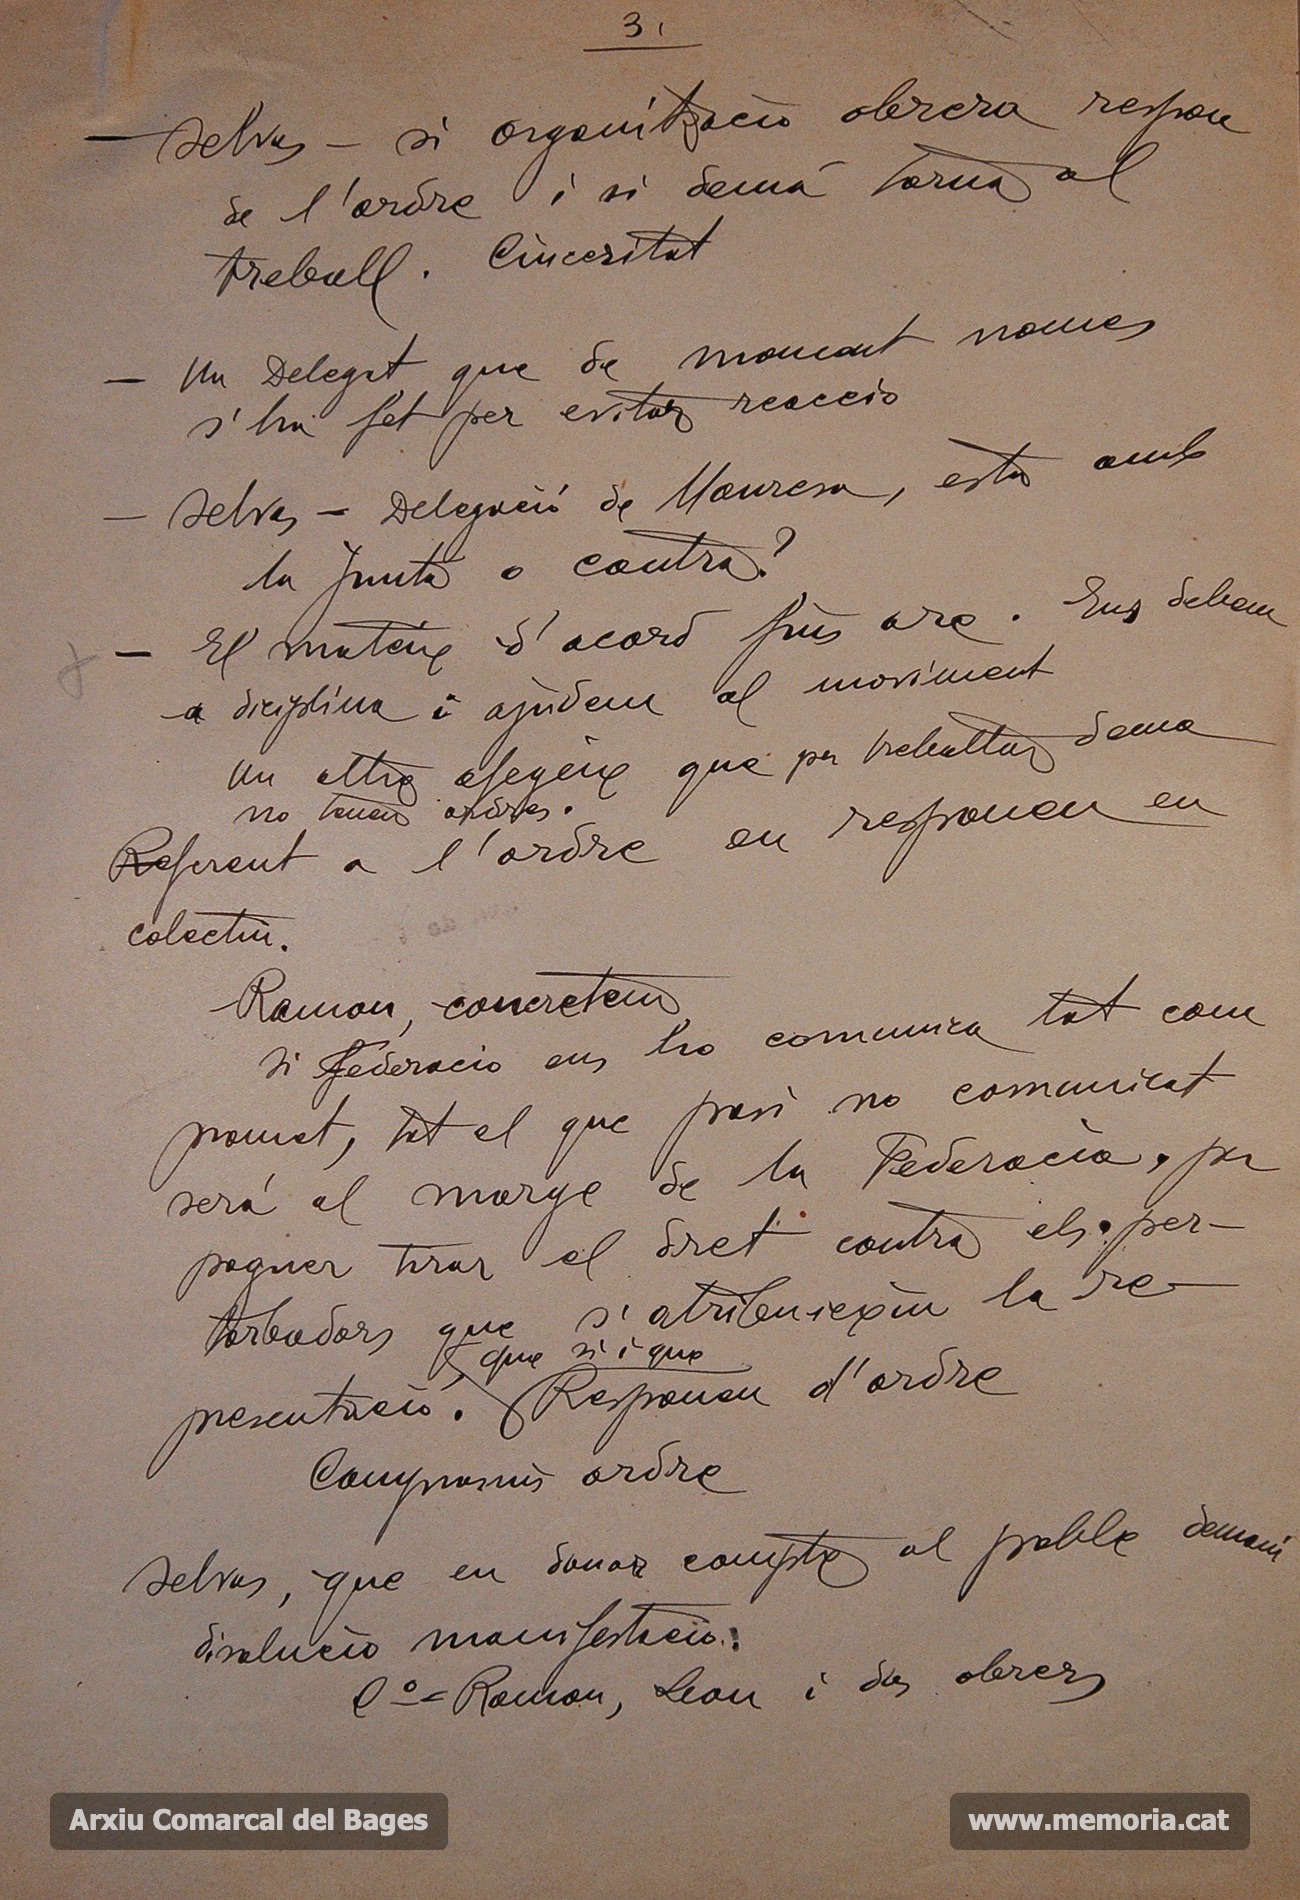 3.
— Selvas – si organització obrera respon
de l'ordre i si demá torna al
treball. Cinceritat
— Un Delegat que de moment nomes
s'ha fet per evitar reaccio
— Selvas – Delegació de Manresa, esta amb
la Junta o contra?
— El mateix d'acord fins are. Ens debem
a diciplina i ajudem al moviment
Un altre afegeix que per treballar dema
no tenen ordres.
Referent a l'ordre en responen en
colectiu.
Ramon, concretem
si Federacio ens ho comunica tot com
promet, tot el que pasi no comunicat
será al marge de la Federacio, per
poguer tirar el dret contra els per-
torbadors que s'atribueixin la re-
presentació. Responen d'ordre
que si i que
Compromis ordre
Selvas, que en donar compte al poble demani
disolucio manifestacio.
Cº = Ramon, Leon i dos obrers
Arxiu Comarcal del Bages
www.memoria.cat